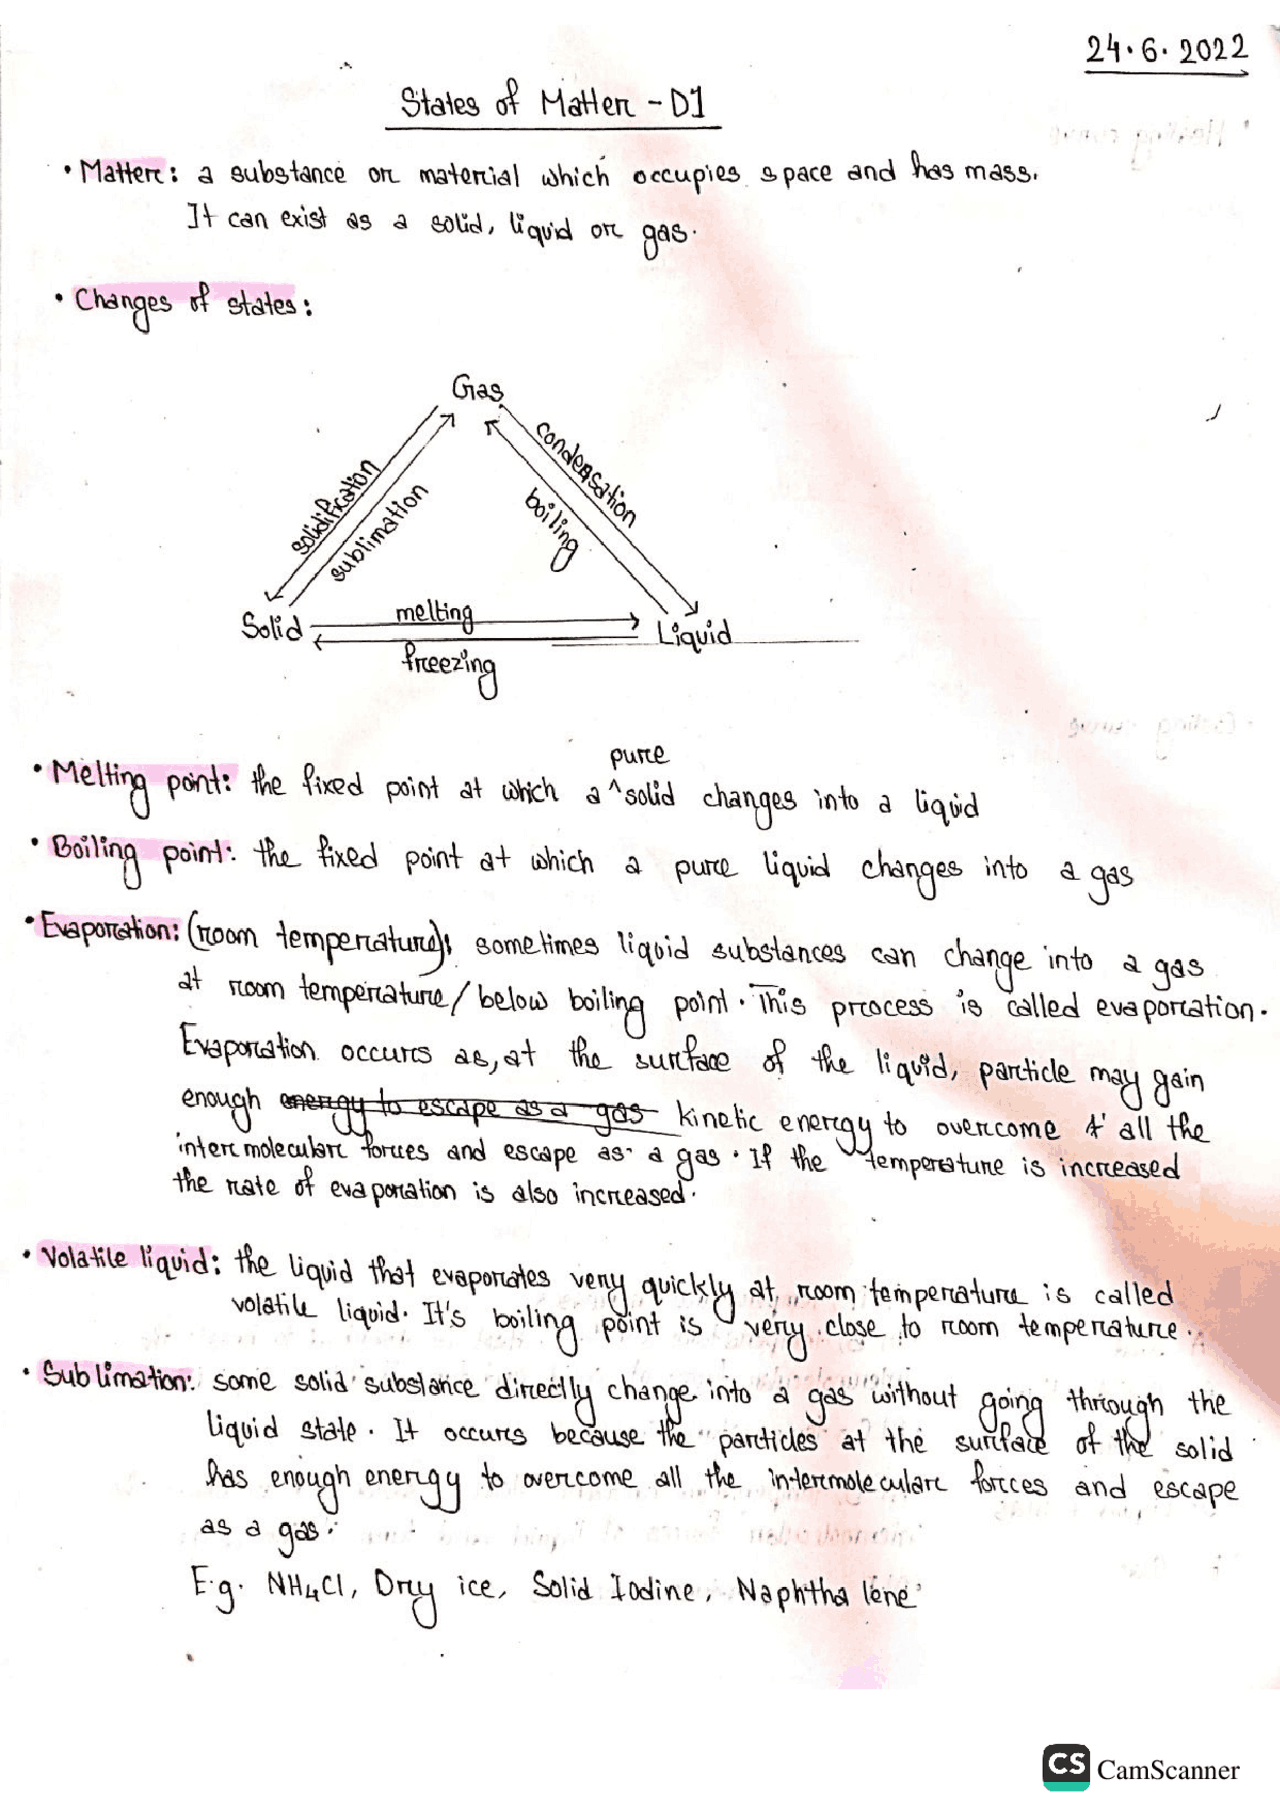 24.6.2022
States of Matter - D1
• Matter: a substance or material which occupies space and has mass.
It can exist as a solid, liquid or gas.
• Changes of states:
Gas
condensation
solidification
sublimation
boiling
Solid
melting
Liquid
freezing
pure
• Melting point: the fixed point at which a ^ solid changes into a liquid
• Boiling point: the fixed point at which a pure liquid changes into a gas
• Evaporation: (room temperature): sometimes liquid substances can change into a gas
at room temperature / below boiling point. This process is called evaporation.
Evaporation occurs as, at the surface of the liquid, particle may gain
enough energy to escape as a gas kinetic energy to overcome all the
intermolecular forces and escape as a gas. If the temperature is increased
the rate of evaporation is also increased.
• Volatile liquid: the liquid that evaporates very quickly at room temperature is called
volatile liquid. It's boiling point is very close to room temperature.
• Sublimation: some solid substance directly change into a gas without going through the
liquid state. It occurs because the particles at the surface of the solid
has enough energy to overcome all the intermolecular forces and escape
as a gas.
E.g. NH₄Cl, Dry ice, Solid Iodine, Naphthalene
CS CamScanner